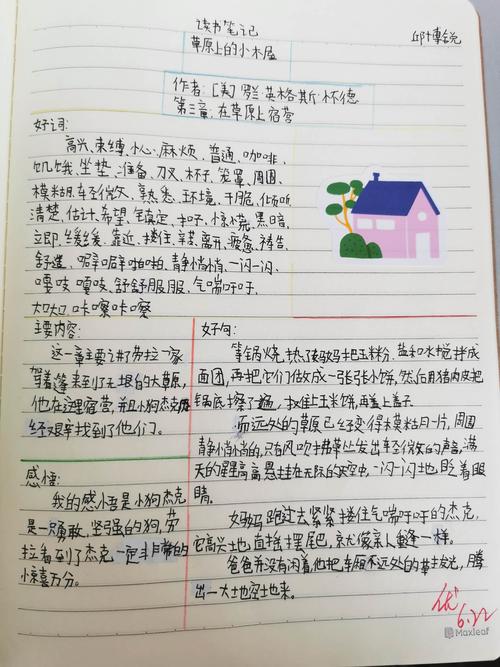 读书笔记
草原上的小木屋
邱博锐
作者:[美]罗兰英格斯·怀德
第三章:在草原上宿营
好词:
高兴、束缚、小心、麻烦、普通、咖啡、
饥饿、坐垫、准备、刀叉、杯子、笼罩、周围、
模糊、轻微、熟悉、环境、干脆、倾听
清楚、估计、希望、镇定、扣子、惊慌、黑暗、
立即、缓缓、靠近、搂住、辛苦、离开、疲惫、祷告、
舒适、噼噼啪啪、静悄悄、一闪一闪、
嘎吱嘎吱、舒舒服服、气喘吁吁、
大口大口、咔嚓咔嚓
主要内容:
这一章主要讲了劳拉一家
驾着篷车来到了无垠的大草原,
他在这里宿营,并且小狗杰克
经艰辛找到了他们。
感悟:
我的感悟是小狗杰克
是一只勇敢、坚强的狗,劳
拉看到了杰克一定非常的
惊喜万分。
好句:
等锅烧热了,妈妈把玉米粉、盐和水搅拌成
面团,再把它们做成一张张小饼,然后用猪肉皮把
锅底擦了遍,放上玉米饼,再盖上盖子。
而远处的草原已经变得模糊一片,周围
静悄悄的,只有风吹拂草丛发出轻微的声音,满
天的星星高高悬挂在无际的天空中,一闪一闪地眨着眼
睛。
妈妈跑过去紧紧搂住气喘吁吁的杰克,
它高兴地直摇摆尾巴,就像亲人重逢一样。
爸爸并没有闲着,他把车厢不远处的草拔光,腾
出一大块空地来。
优
6.22
Maxleaf